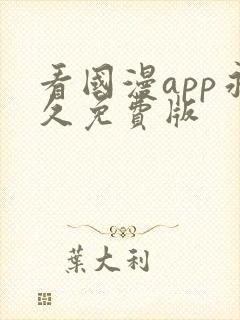 看國漫app永
久免費版
葉大利